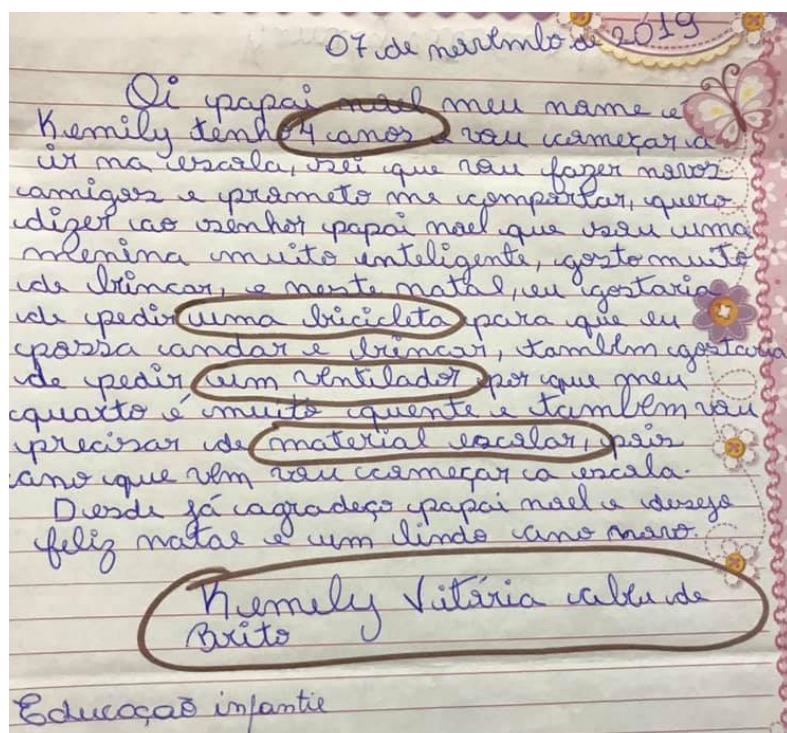 07 de novembro de 2019
Oi papai noel meu nome e
Kemily tenho 4 anos e vou começar a
ir na escola, sei que vou fazer novos
amigos e prometo me comportar, quero
dizer ao senhor papai noel que sou uma
menina muito enteligente, gosto muito
de brincar, e neste natal, eu gostaria
de pedir uma bricicleta para que eu
possa andar e brincar, tambem gostaria
de pedir um ventilador por que meu
quarto é muito quente e tambem vou
precisar de material escolar, pois
ano que vem vou começar a escola.
Desde já agradeço papai noel e desejo
feliz natal e um lindo ano novo.
Kemely Vitória de
Brito
Educação infantil